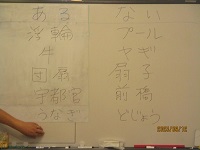 ある ない
浮輪 プール
牛 ヤギ
団扇 扇子
宇都宮 前橋
うなぎ どじょう